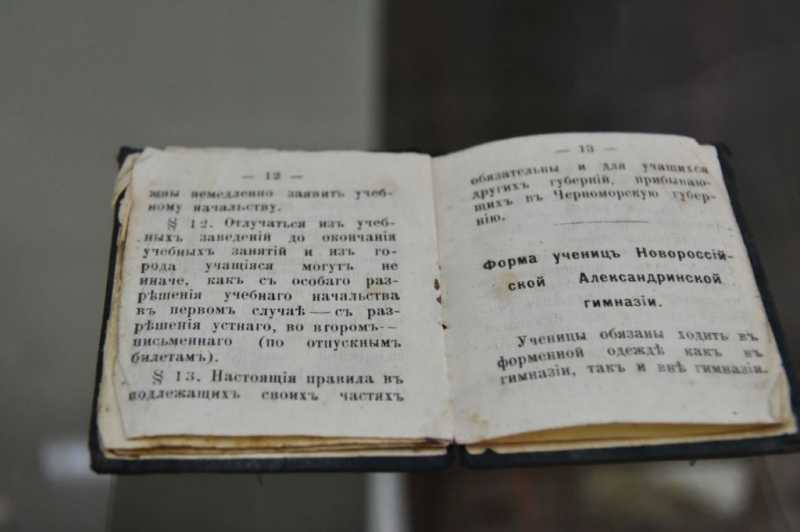 — 12 —
жны немедленно заявить учеб-
ному начальству.
§ 12. Отлучаться изъ учеб-
ныхъ заведеній до окончанія
учебныхъ занятій и изъ го-
рода учащіяся могутъ не
иначе, какъ съ особаго раз-
рѣшенія учебнаго начальства
въ первомъ случаѣ — съ раз-
рѣшенія устнаго, во второмъ—
письменнаго (по отпускнымъ
билетамъ).
§ 13. Настоящія правила въ
подлежащихъ своихъ частяхъ
— 13 —
обязательны и для учащихся
другихъ губерній, прибываю-
щихъ въ Черноморскую губер-
нію.
Форма ученицъ Новороссій-
ской Александринской
гимназіи.
Ученицы обязаны ходить въ
форменной одеждѣ какъ въ
гимназіи, такъ и внѣ гимназіи.